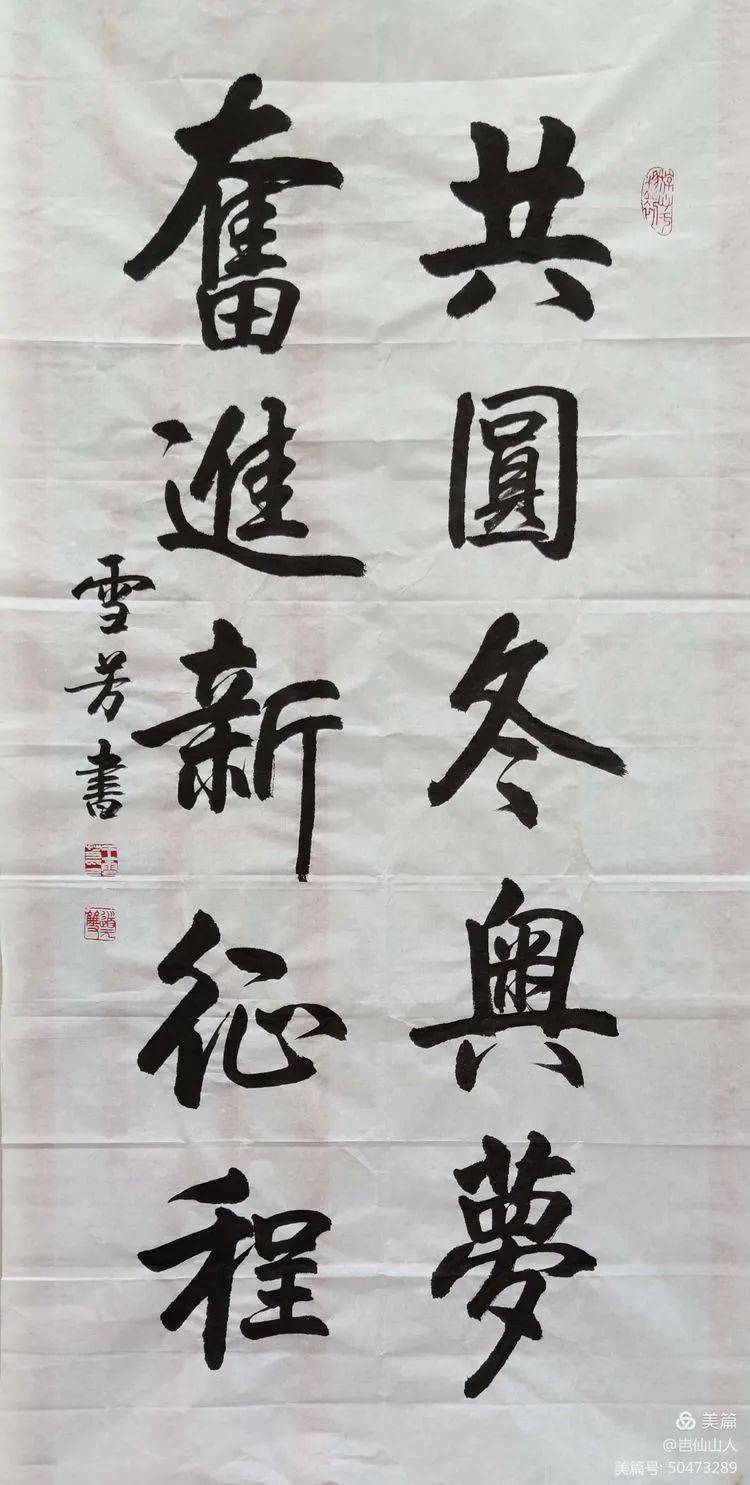 共圓冬奧夢
奮進新征程
雪芳書
美篇
@岜仙山人
美篇号: 50473289